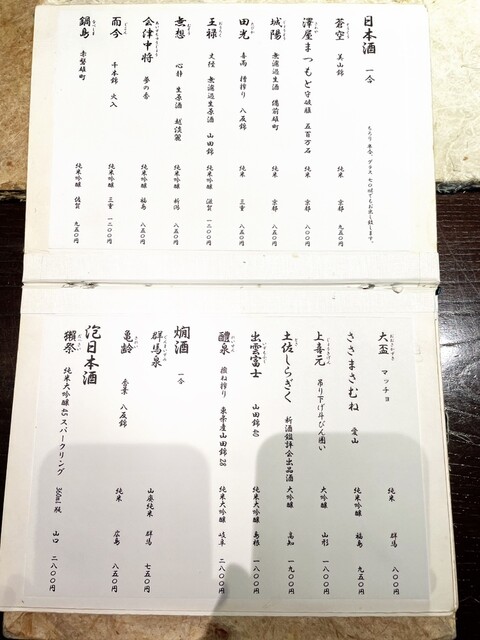 日本酒 一合
もちろん 半合、グラス 七〇mlでもお出し致します。
蒼空 美山錦 純米 京都 九五〇円
澤屋まつもと 守破離 五百万石 純米 京都 八五〇円
城陽 無濾過生酒 備前雄町 純米 京都 八五〇円
田光 喜両 槽搾り 八反錦 純米 三重 八五〇円
王禄 丈径 無濾過生原酒 山田錦 純米吟醸 滋賀 一二〇〇円
無想 心静 生原酒 越淡麗 純米吟醸 新潟 八五〇円
会津中将 夢の香 純米吟醸 福島 八五〇円
而今 千本錦 火入 純米吟醸 三重 一二〇〇円
鍋島 赤磐雄町 純米吟醸 佐賀 九五〇円
大盃 マッチョ 純米 群馬 八〇〇円
ささまさむね 愛山 純米吟醸 福島 九五〇円
上喜元 吊り下げ斗びん囲い 大吟醸 山形 一八〇〇円
土佐しらぎく 新酒鑑評会出品酒 大吟醸 高知 一九〇〇円
出雲富士 山田錦40 純米大吟醸 島根 一八〇〇円
醴泉 撥ね搾り 東条産山田錦28 純米大吟醸 岐阜 二八〇〇円
燗酒 一合
群馬泉 山廃純米 群馬 七五〇円
亀齢 壱業 八反錦 純米 広島 八五〇円
泡日本酒
獺祭 純米大吟醸45スパークリング 360ml瓶 山口 二八〇〇円